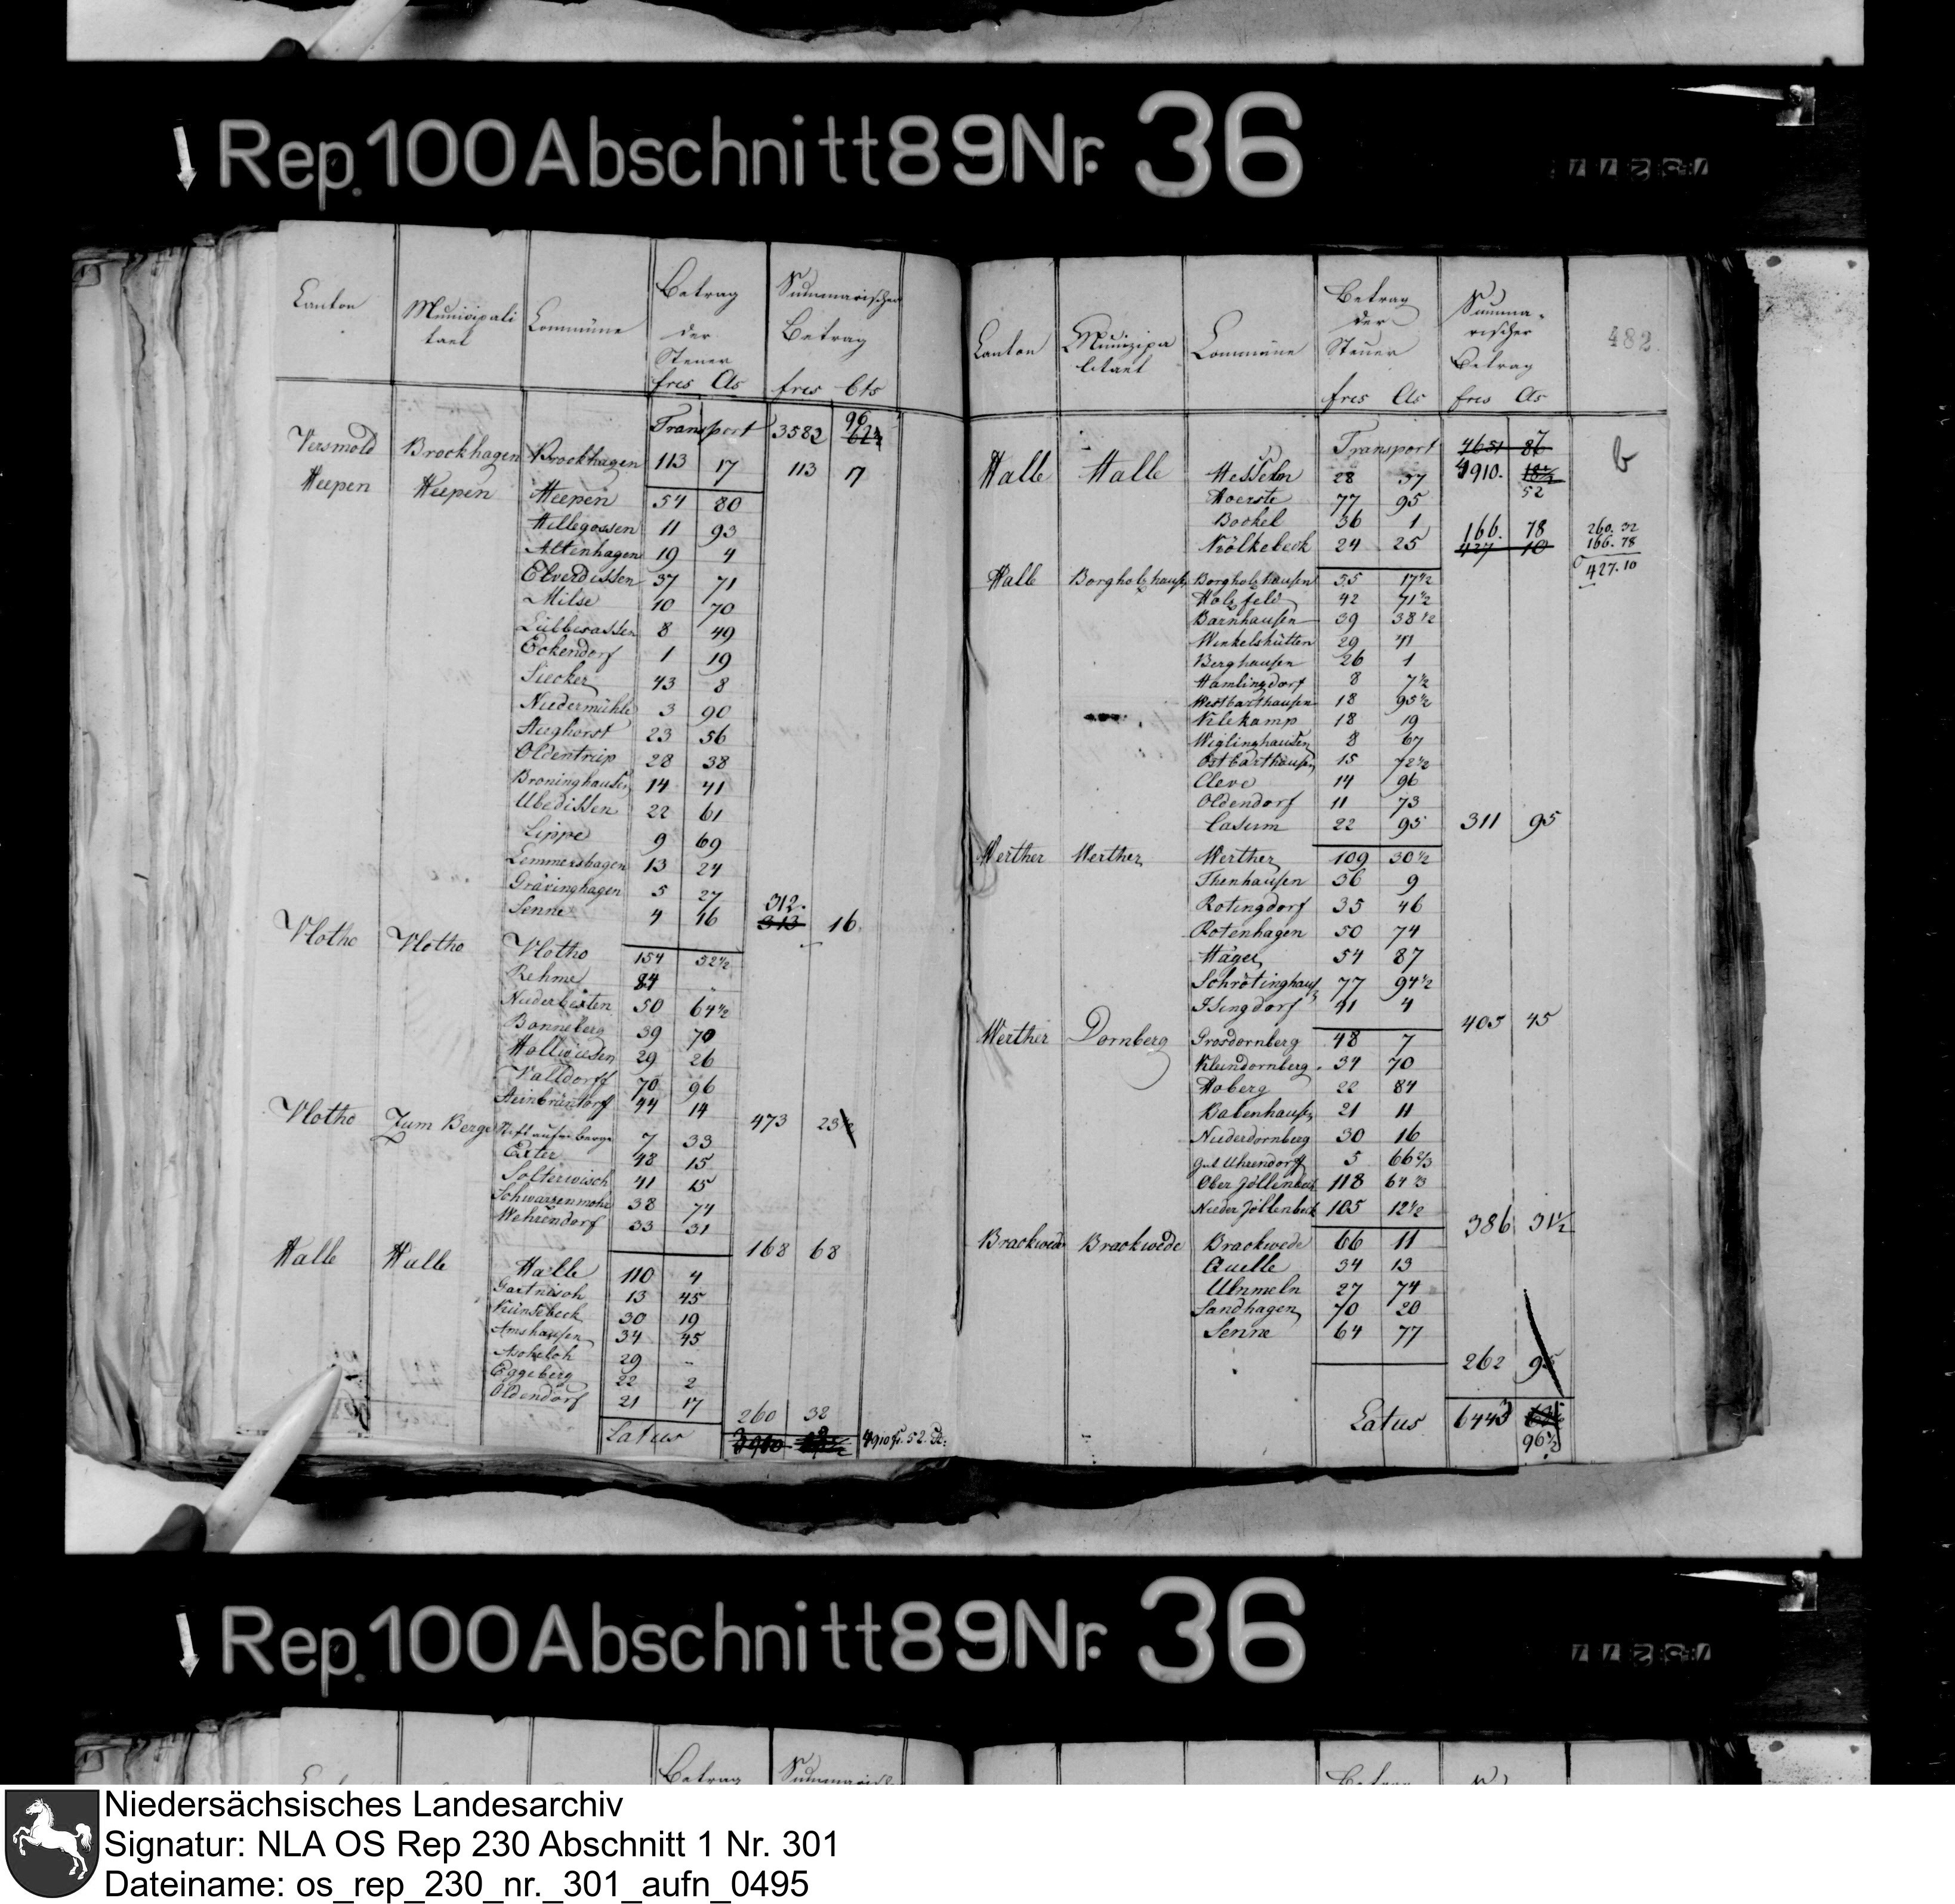 Rep. 100 Abschnitt 89 Nr. 36
Canton Municipali Commüne Betrag Summarischer
taet der Betrag
Steuer
frcs Cts frcs Cts
Transport 3582 96
Versmold Brockhagen Brockhagen 113 17 113 17
Heepen Heepen Heepen 54 80
Hillegossen 11 93
Altenhagen 19 4
Elverdissen 37 71
Milse 10 70
8 49
Eckendorf 1 19
Siecker 43 8
Niedermühle 3 90
Stieghorst 23 56
Oldentrup 28 38
Broninghausen 14 41
Ubedissen 22 61
Lippe 9 69
Lemmershagen 13 24
Grävinghagen 5 27
Senne 4 16 312. 16
313
Vlotho Vlotho Vlotho 154 52½
Rehme 84 "
Niederbexten 50 64½
Bonneberg 39 70
Hollwiesen 29 26
Valldorff 70 96
Steinbründorf 44 14 473 23½
Vlotho Zum Berge Stift auf'm berge 7 33
Exter 48 15
Solterwisch 41 15
Schwarzenmohr 38 74
Wehrendorf 33 31 168 68
Halle Halle Halle 110 4
Gartnisch 13 45
Künsebeck 30 19
Amshausen 34 45
Ascheloh 29 "
Eggeberg 22 2
Oldendorf 21 17 260 32
Latus 4910 fr. 52. Ct.
482
Canton Munizipa Commüne Betrag Summa-
litaet der rischer
Steuer Betrag
frcs Cts frcs Cts
Transport 4651 87
b
Halle Halle Hesseln 28 37 4910. 52
Hoerste 77 95
Bockel 36 1
Kölkebeck 24 25 166. 78
427 10
260. 32
166. 78
427. 10
Halle Borgholzhausen Borgholzhausen 55 17½
Holzfeld 42 71½
Barnhausen 39 38½
Winkelshütten 29 41
Berghausen 26 1
Hamlingdorf 8 7½
Westbarthausen 18 95½
Kleekamp 18 19
Wiglinghausen 8 67
Ostbarthausen 15 72½
Cleve 14 96
Oldendorf 11 73
Casum 22 95 311 95
Werther Werther Werther 109 30½
Thenhausen 36 9
Rotingdorf 35 46
Rotenhagen 50 74
Häger 54 87
Schrötinghaus 77 94½
Isingdorf 41 4 405 45
Werther Dornberg Grosdornberg 48 7
Kleindornberg 34 70
Hoberg 22 84
Babenhausen 21 11
Niederdornberg 30 16
Gut Uhrendorff 5 66⅔
Ober Jöllenbeck 118 64⅔
Nieder Jöllenbeck 105 12½ 386 31½
Brackwede Brackwede Brackwede 66 11
Quelle 34 13
Ummeln 27 74
Sandhagen 70 20
Senne 64 77 262 95
Latus 6443 96½
Rep. 100 Abschnitt 89 Nr. 36
Betrag
Niedersächsisches Landesarchiv
Signatur: NLA OS Rep 230 Abschnitt 1 Nr. 301
Dateiname: os_rep_230_nr._301_aufn_0495